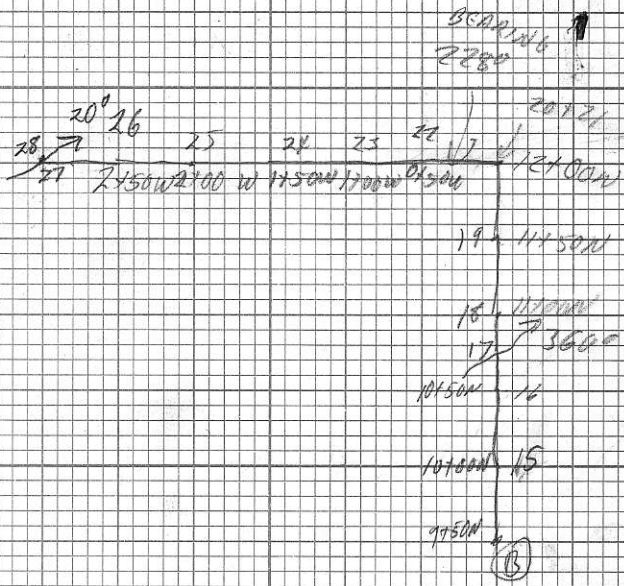 BEARING
228°
20+21
20° 26
28
25
24
23
22
27
2+50W 2+00 W 1+50W 1+00W 0+50W
12+00N
19 11+50N
18 11+00N
17 360°
10+50N 16
10+00N 15
9+50N
B